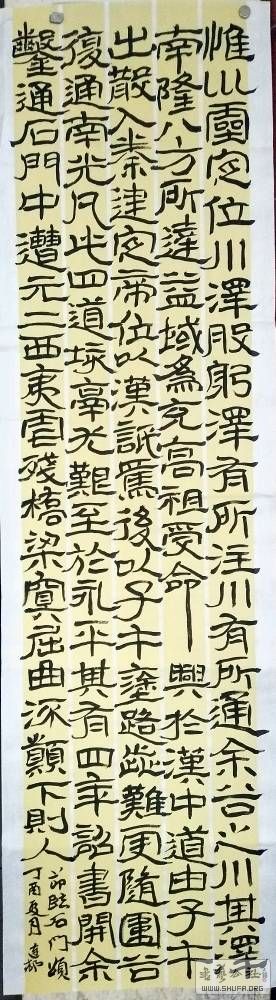 惟巛靈定位川澤股躬澤有所注川有所通余谷之川其澤
南隆八方所達益域為充高祖受命興於漢中道由子午
出散入秦建定帝位以漢詆焉後以子午塗路歰難更隨圍谷
復通堂光凡此四道垓鬲尤艱至於永平其有四年詔書開余
鑿通石門中遭元二西夷虐殘橋梁屈曲流顛下則入
節臨石門頌
丁酉夏月
WWW.SHUFA.ORG